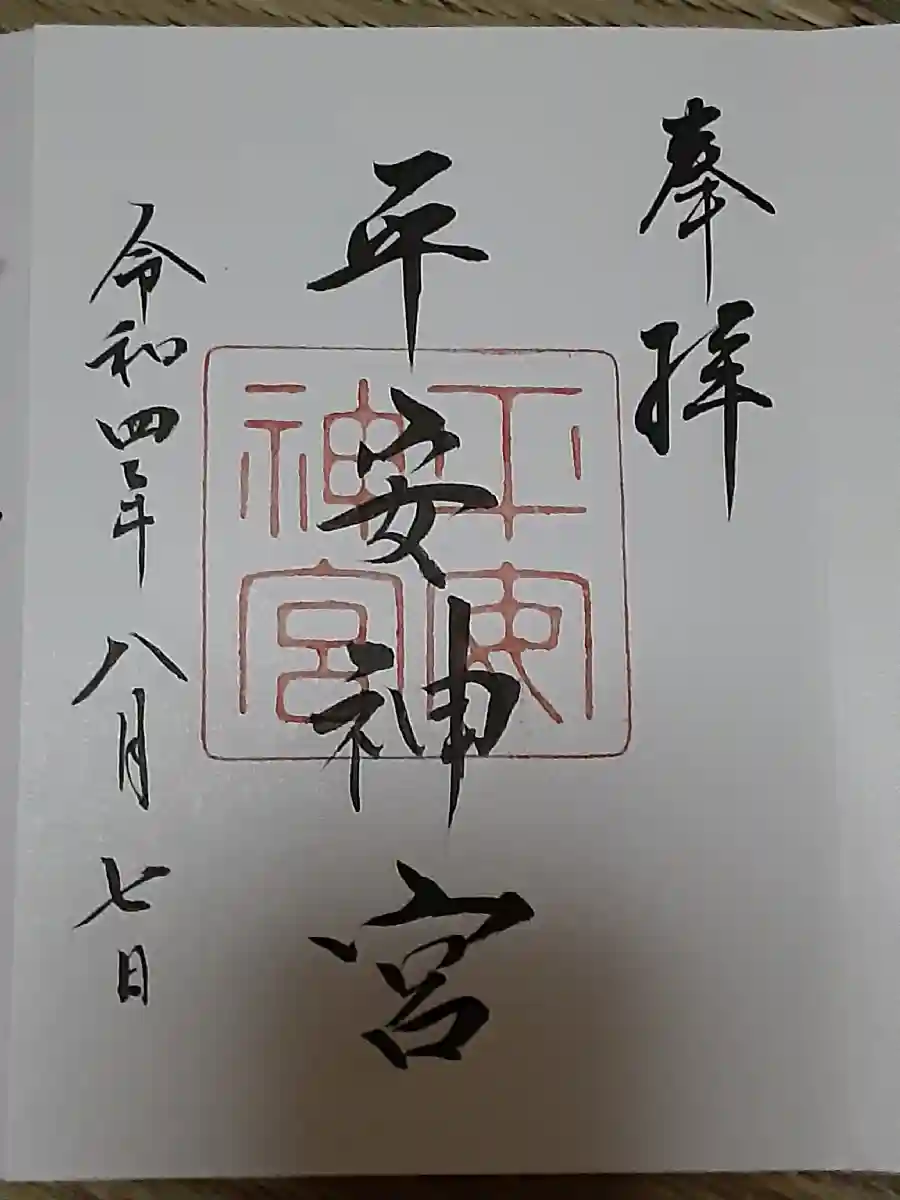 奉拝
平安神宮
平安神宮
令和四年八月七日